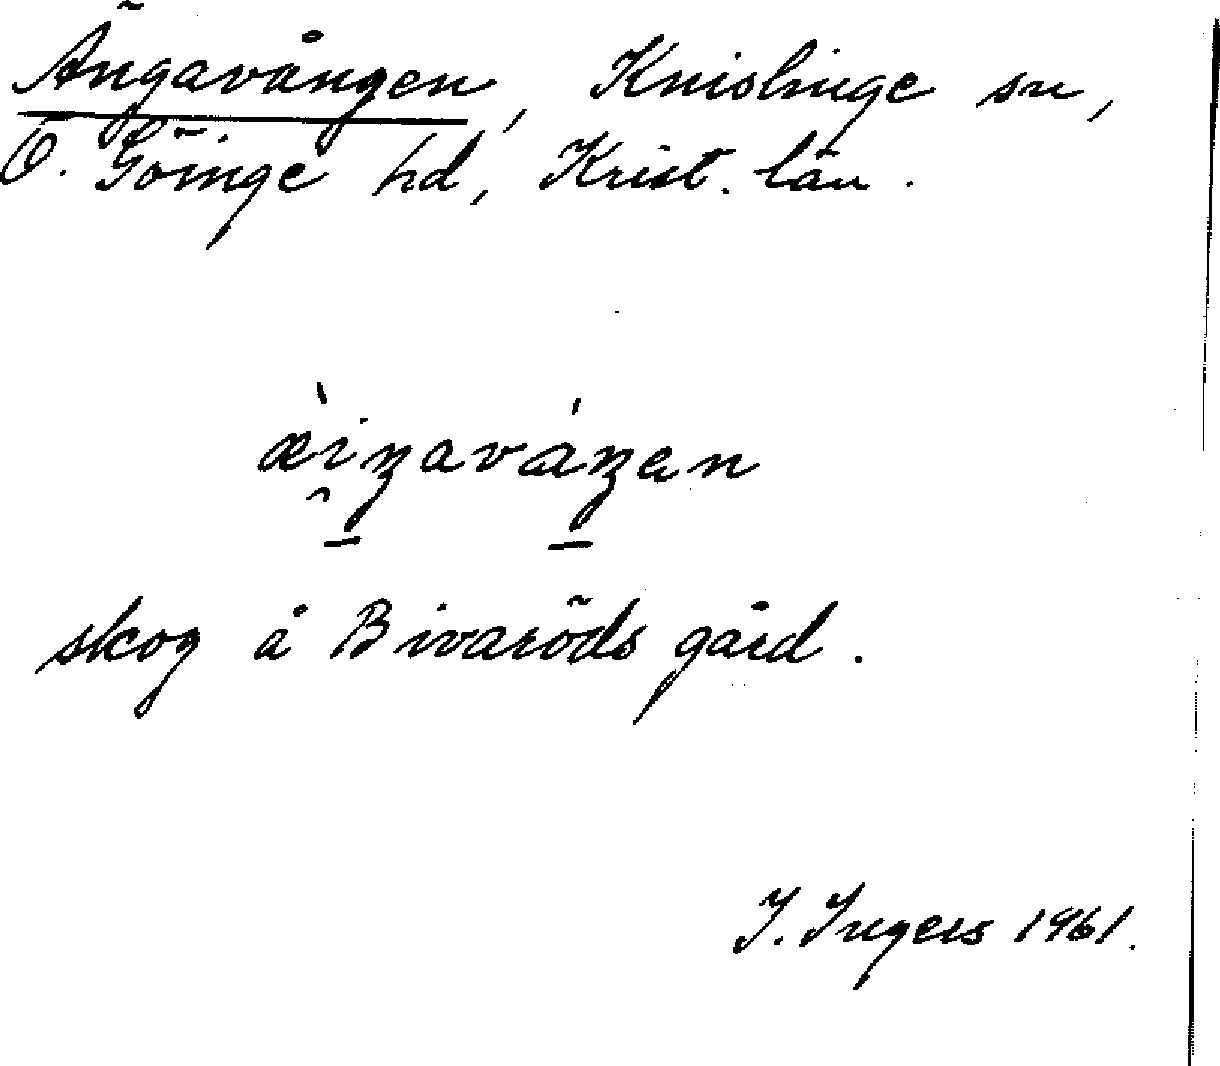 Ängavången, Knislinge sn,
Ö. Göinge hd, Krist. län.
æ̀i̯ŋaváŋen
skog å Bivaröds gård.
I. Ingers 1961.